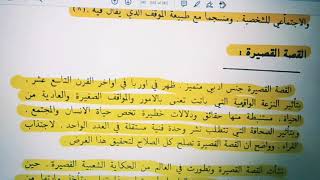 والاجتماعي للشخصية . ومنسجما مع طبيعة الموقف الذي يقال فيه (٨)
القصة القصيرة :
القصة القصيرة جنس ادبي متميز ، ظهر في اوربا في اواخر القرن التاسع عشر ،
بتأثير النزعة الواقعية التي باتت تعنى بالأمور والمواقف الصغيرة والعادية من
الحياة ، مستنبطة منها حقائق ودلالات خطيرة تخص حياة الانسان والمجتمع .
وبتأثير الصحافة التي تتطلب نشر وحدة فنية مستقلة في العدد الواحد . لاجتذاب
القراء . وواضح ان القصة القصيرة تصلح كل الصلاح لتحقيق هذا الغرض .
نشأت القصة القصيرة وتطورت في العالم من الحكاية الشعبية القصيرة . حين